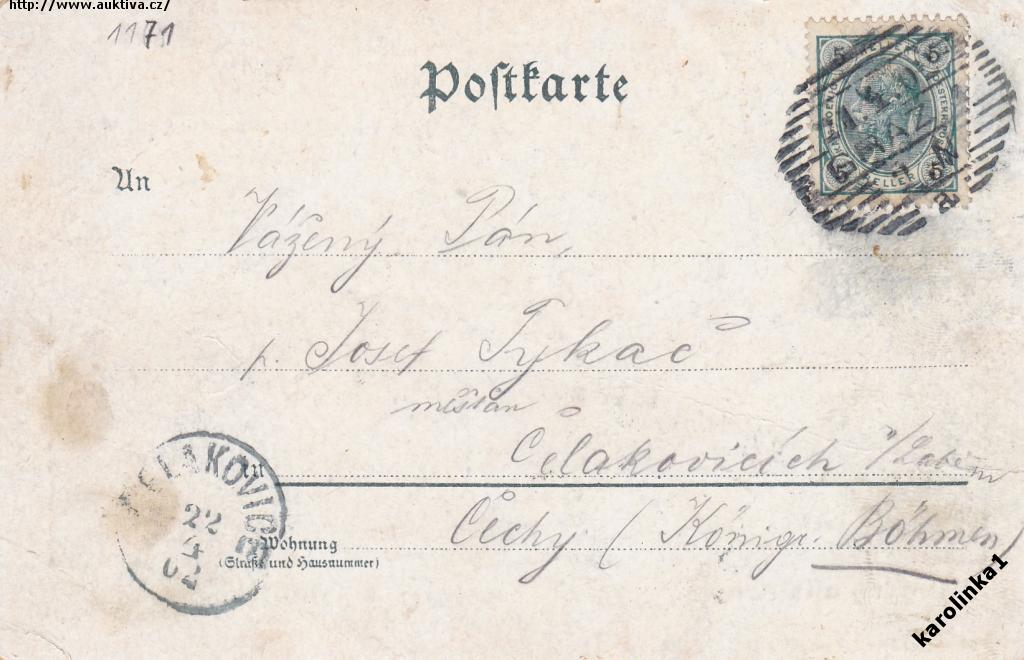 http://www.auktiva.cz/
1171
Postkarte
5 HELLER 5
5 HELLER 5
An
Vážený Pán,
p. Josef Tykač
měšťan
Čelakovicích n/Labem
in
ČELAKOVIC
22
4
02
Čechy (Königr. Böhmen)
Wohnung
(Straße und Hausnummer)
karolinka1